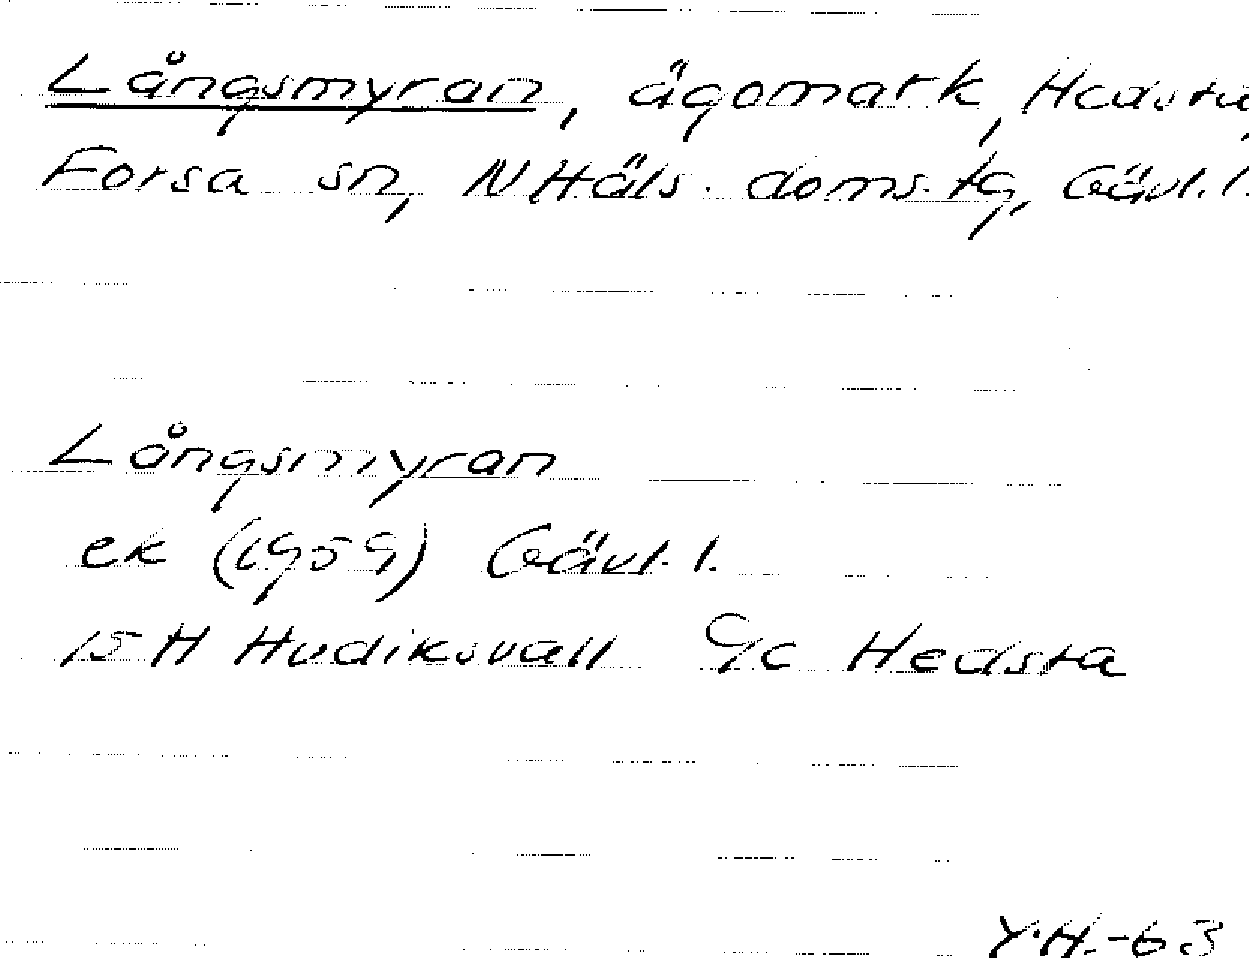 Långsmyran, ägomark, Hedsta,
Forsa sn, N Häls. doms. tg, Gävl. l.
Långsmyran
ek (1959) Gävl. l.
15 H Hudiksvall 9c Hedsta
Y.H.-63